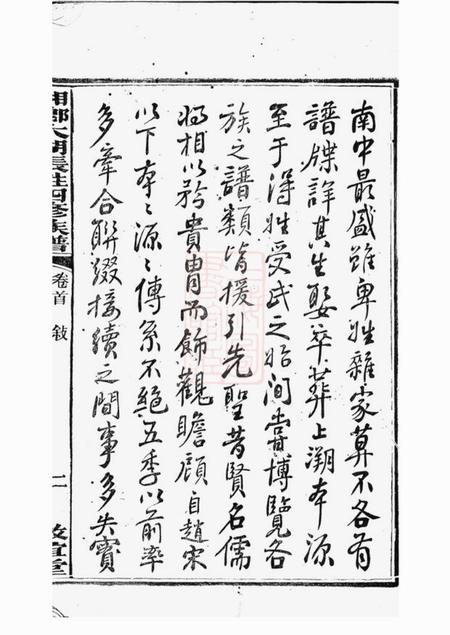 南中最盛雖卑姓雜家莫不各有
譜牒詳其生娶卒葬上溯本源
至于得姓受氏之始洵嘗博覽各
族之譜類皆援引先聖昔賢名儒
將相以矜貴胄而飾觀瞻顧自趙宋
以下本本源源傳系不絕五季以前率
多牽合聯綴接續之間事多失實
湘鄉大湖長姓四修族譜
卷首
敘
二
敦宜堂